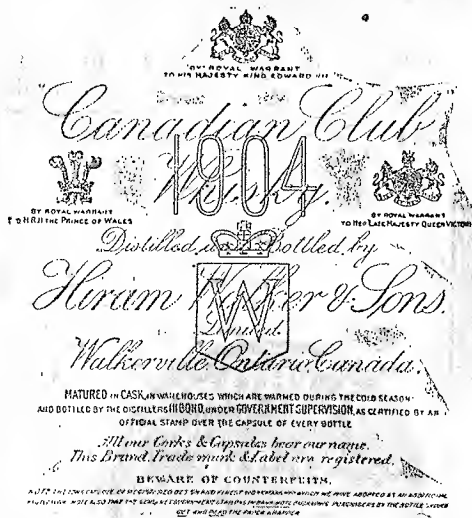 BY ROYAL WARRANT
TO HIS MAJESTY KING EDWARD VII
"Canadian Club"
1904
Whisky.
BY ROYAL WARRANT
TO H.R.H. THE PRINCE OF WALES
BY ROYAL WARRANT
TO HER LATE MAJESTY QUEEN VICTORIA
Distilled and bottled by
Hiram Walker & Sons.
W
Limited
Walkerville, Ontario, Canada.
MATURED IN CASK, IN WAREHOUSES WHICH ARE WARMED DURING THE COLD SEASON
AND BOTTLED BY THE DISTILLERS IN BOND, UNDER GOVERNMENT SUPERVISION, AS CERTIFIED BY AN
OFFICIAL STAMP OVER THE CAPSULE OF EVERY BOTTLE
All our Corks & Capsules bear our name.
This Brand, Trade mark & Label are registered.
BEWARE OF COUNTERFEITS.
CUT AND READ THE PAPER WRAPPER